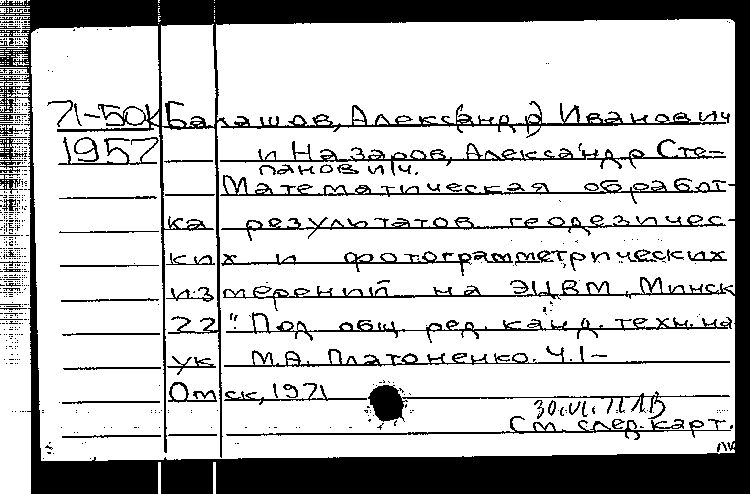 71-50К Балашов, Александр Иванович
1957 и Назаров, Александр Сте-
панович.
Математическая обработ-
ка результатов геодезичес-
ких и фотограмметрических
измерений на ЭЦВМ „Минск
22" Под общ. ред. канд. техн. на
ук М.А. Платоненко. Ч.1-
Омск, 1971
30.VI.71
См. след. карт.